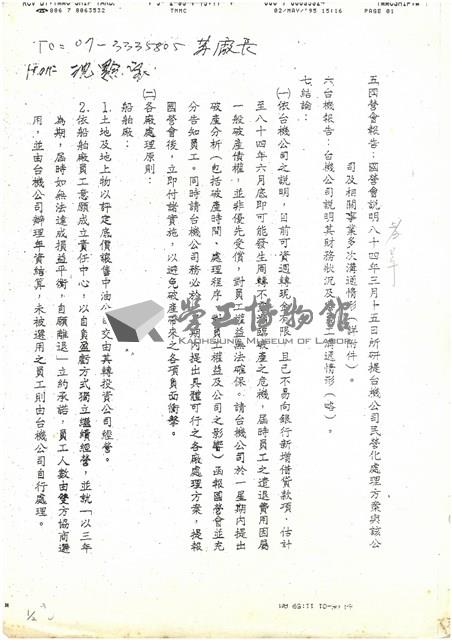 006 7 8063532
TMMC
02/MAY/'95 15:16
PAGE 01
TO: 07-3335805 蔡廠長
五、國營會報告：國營會說明八十四年三月十五日所研提台機公司民營化處理方案與該公
司及相關事業多次溝通情形（詳附件）。
六、台機公司報告：台機公司說明其財務狀況及
溝通情形（略）。
七、結論：
(一)依台機公司之說明，目前可資週轉現金有限，且已不易向銀行新增借貸款項，估計
至八十四年六月底即可能發生周轉不
臨破產之危機，屆時員工之遣退費用因屬
一般破產債權，並非優先受償，對員工權益無法確保。請台機公司於一星期內提出
破產分析（包括破產時間、處理程序、對員工權益及公司之影響）函報國營會並充
分告知員工。同時請台機公司務必於
期內提出具體可行之各廠處理方案，提報
國營會後，立即付諸實施，以避免破產帶來之各項負面衝擊。
(二)各廠處理原則：
船舶廠：
1.土地及地上物以評定底價讓售中油公司交由其轉投資公司經營。
2.依船舶廠員工意願成立責任中心，以自負盈虧方式獨立繼續經營，並就「以三年
為期，屆時如無法達成損益平衡，自願離退」立約承諾，員工人數由雙方協商選
用，並由台機公司辦理年資結算，未被選用之員工則由台機公司自行處理。
勞工博物館
KAOHSIUNG MUSEUM OF LABOR
1/2